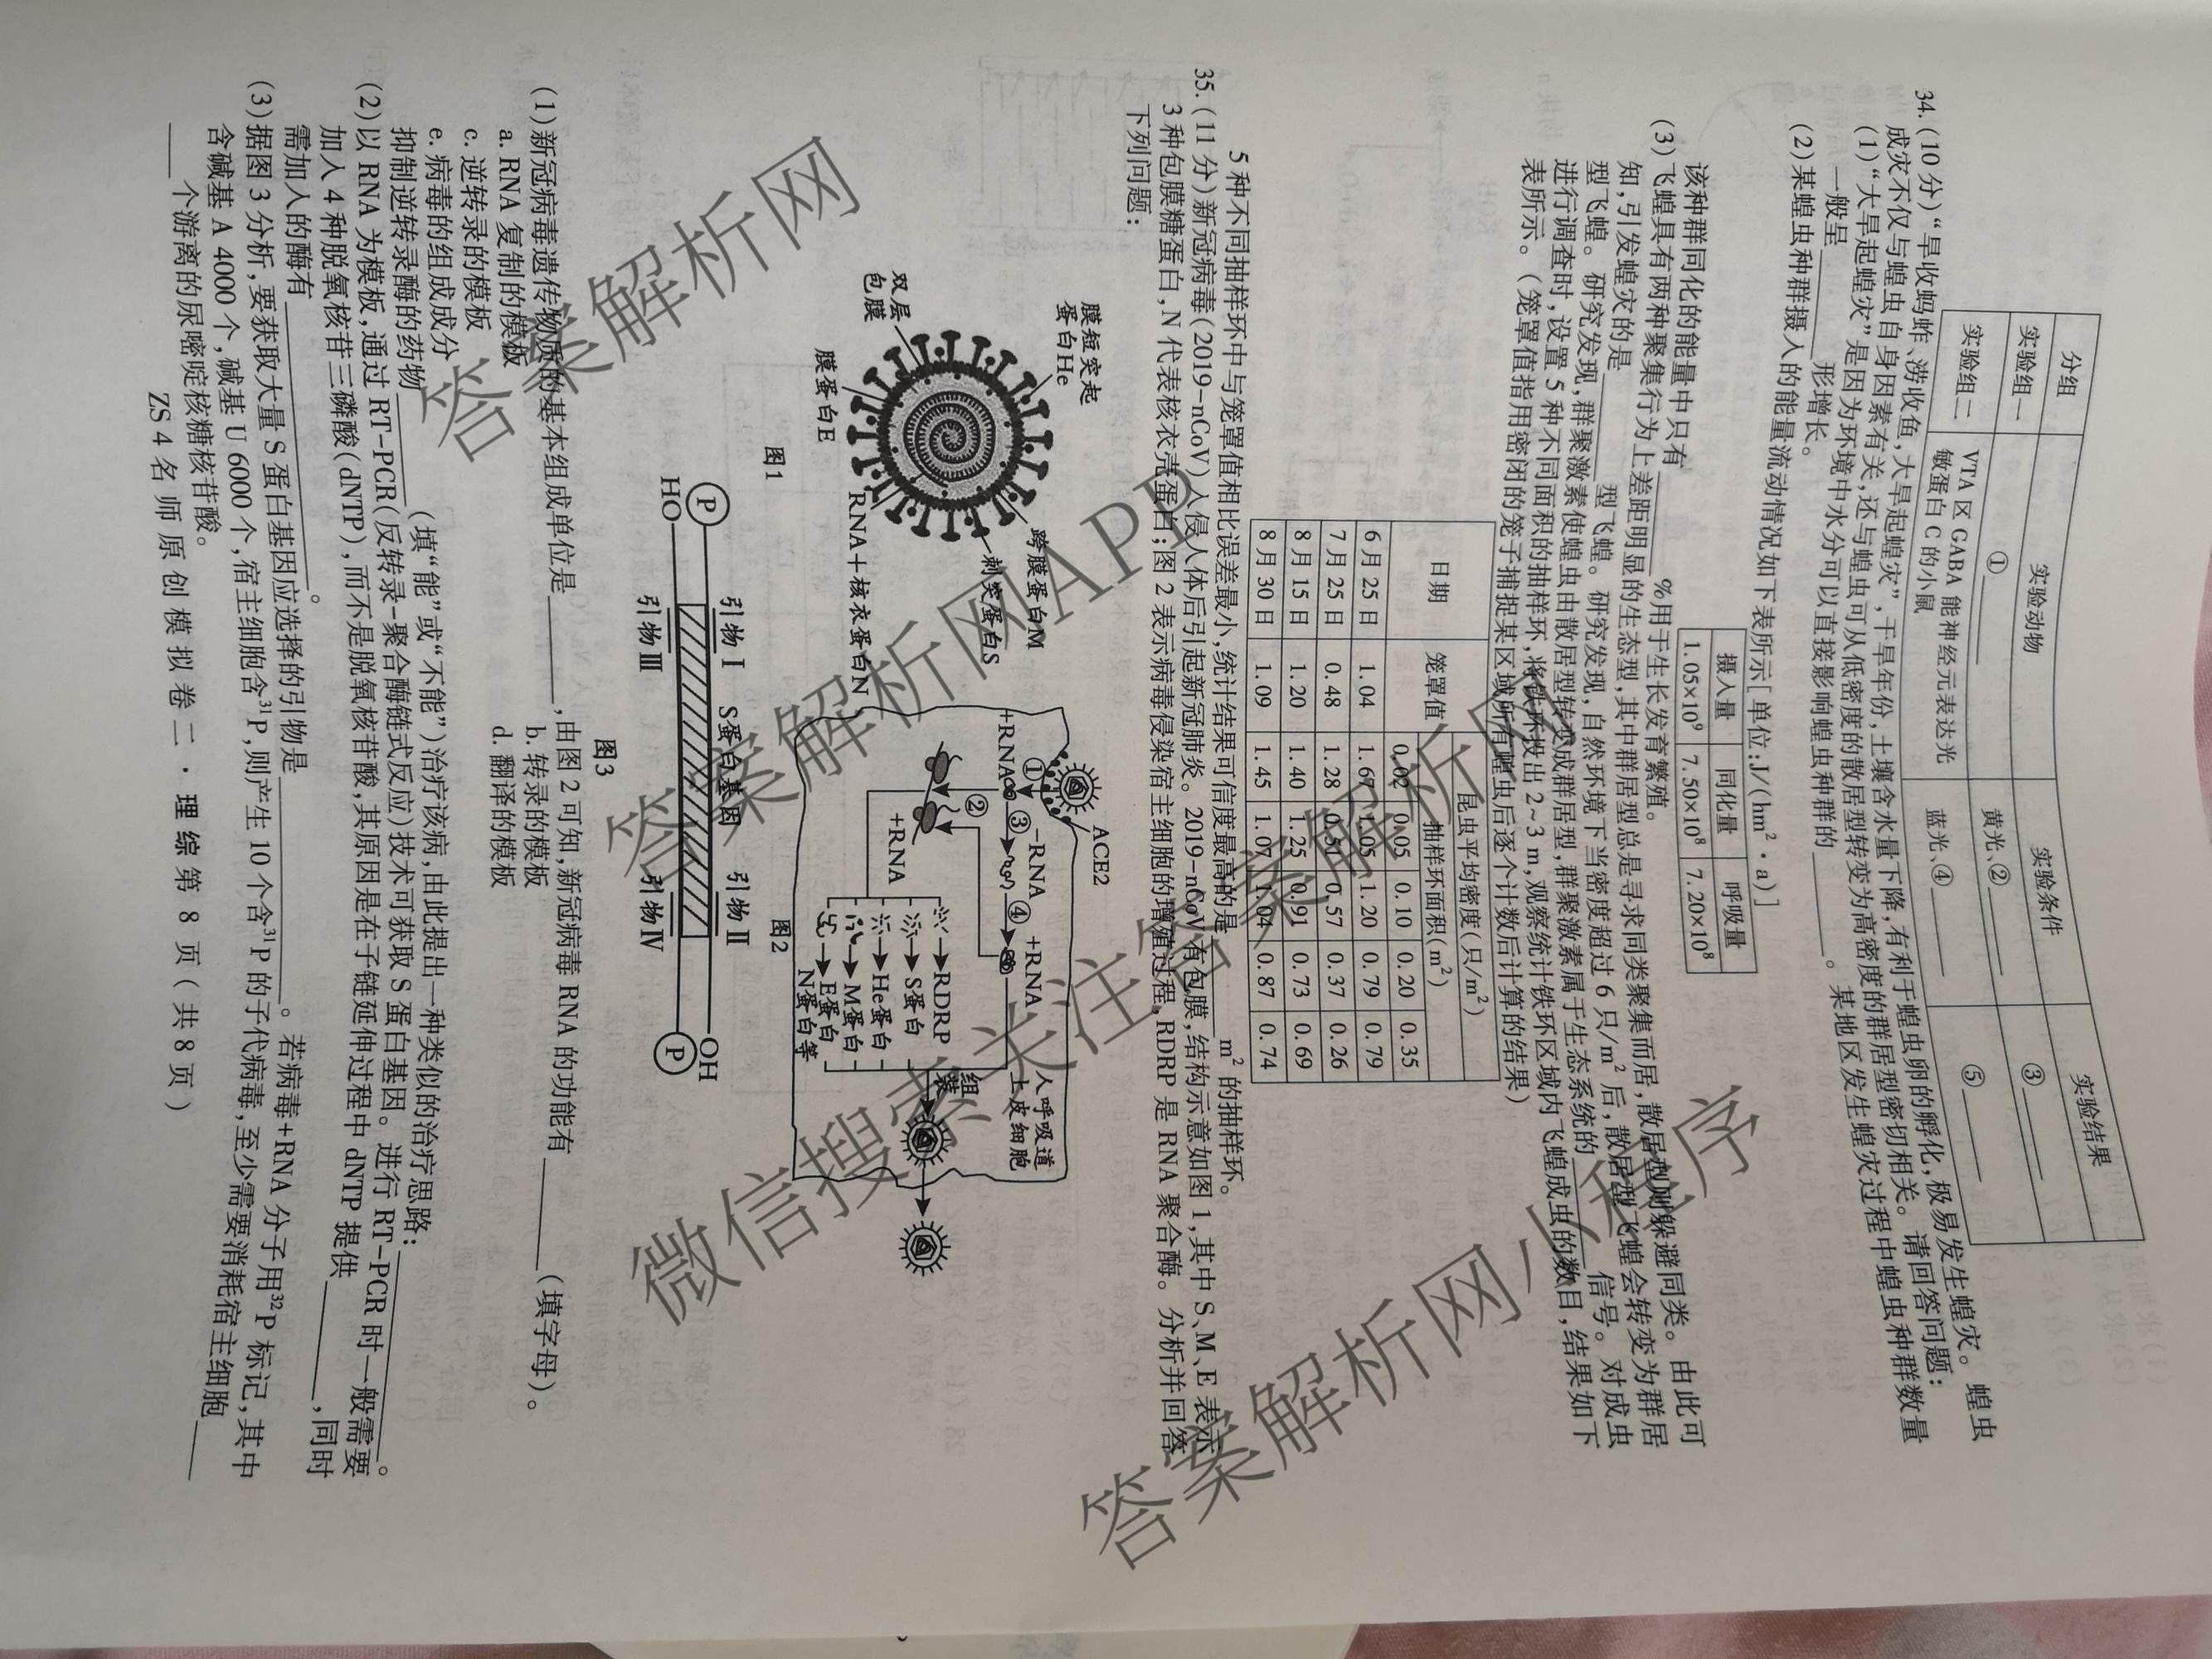 分组 实验动物 实验条件 实验结果
实验组一 ① 黄光、② ③
实验组二 VTA 区 GABA 能神经元表达光敏蛋白 C 的小鼠 蓝光、④ ⑤
34.(10 分)“旱收蚂蚱、涝收鱼,大旱起蝗灾”,干旱年份,土壤含水量下降,有利于蝗虫卵的孵化,极易发生蝗灾。蝗虫
成灾不仅与蝗虫自身因素有关,还与蝗虫可从低密度的散居型转变为高密度的群居型密切相关。请回答问题:
(1)“大旱起蝗灾”是因为环境中水分可以直接影响蝗虫种群的 。某地区发生蝗灾过程中蝗虫种群数量
一般呈 形增长。
(2)某蝗虫种群摄入的能量流动情况如下表所示[单位:J/(hm²·a)]
摄入量 同化量 呼吸量
1.05×10⁹ 7.50×10⁸ 7.20×10⁸
该种群同化的能量中只有 %用于生长发育繁殖。
(3)飞蝗具有两种聚集行为上差距明显的生态型,其中群居型总是寻求同类聚集而居,散居型则躲避同类。由此可
知,引发蝗灾的是 型飞蝗。研究发现,自然环境下当密度超过 6 只/m² 后,散居型飞蝗会转变为群居
型飞蝗。研究发现,群聚激素使蝗虫由散居型转变成群居型,群聚激素属于生态系统的 信号。对成虫
进行调查时,设置 5 种不同面积的抽样环,将铁环投出 2~3 m,观察统计铁环区域内飞蝗成虫的数目,结果如下
表所示。(笼罩值指用密闭的笼子捕捉某区域所有蝗虫后逐个计数后计算的结果)
日期 笼罩值 昆虫平均密度(只/m²)
抽样环面积(m²)
0.02 0.05 0.10 0.20 0.35
6 月 25 日 1.04 1.67 1.05 1.20 0.79 0.79
7 月 25 日 0.48 1.28 0.57 0.57 0.37 0.26
8 月 15 日 1.20 1.40 1.25 0.91 0.73 0.69
8 月 30 日 1.09 1.45 1.07 1.04 0.87 0.74
5 种不同抽样环中与笼罩值相比误差最小,统计结果可信度最高的是 m² 的抽样环。
35.(11 分)新冠病毒(2019-nCoV)入侵人体后引起新冠肺炎。2019-nCoV 有包膜,结构示意如图 1,其中 S、M、E 表示
3 种包膜糖蛋白,N 代表核衣壳蛋白;图 2 表示病毒侵染宿主细胞的增殖过程,RDRP 是 RNA 聚合酶。分析并回答
下列问题:
膜短突起
蛋白He
双层
包膜
膜蛋白E
跨膜蛋白M
刺突蛋白S
RNA+核衣蛋白N
图1
ACE2
人呼吸道
上皮细胞
+RNA ① ③ -RNA ④ +RNA
②
+RNA
RDRP
S蛋白
He蛋白
M蛋白
E蛋白
N蛋白等
组装
图2
引物Ⅰ S蛋白基因 引物Ⅱ
P OH
HO P
引物Ⅲ 引物Ⅳ
图3
(1)新冠病毒遗传物质的基本组成单位是 ,由图 2 可知,新冠病毒 RNA 的功能有 (填字母)。
a. RNA 复制的模板 b. 转录的模板
c. 逆转录的模板 d. 翻译的模板
e. 病毒的组成成分
抑制逆转录酶的药物 (填“能”或“不能”)治疗该病,由此提出一种类似的治疗思路: 。
(2)以 RNA 为模板,通过 RT-PCR(反转录-聚合酶链式反应)技术可获取 S 蛋白基因。进行 RT-PCR 时一般需要
加入 4 种脱氧核苷三磷酸(dNTP),而不是脱氧核苷酸,其原因是在子链延伸过程中 dNTP 提供 ,同时
需加入的酶有 。
(3)据图 3 分析,要获取大量 S 蛋白基因应选择的引物是 。若病毒+RNA 分子用³²P 标记,其中
含碱基 A 4000 个,碱基 U 6000 个,宿主细胞含³¹P,则产生 10 个含³¹P 的子代病毒,至少需要消耗宿主细胞
个游离的尿嘧啶核糖核苷酸。
ZS4 名师原创模拟卷二·理综第 8 页(共 8 页)
答案解析网
微信搜索关注答案解析网小程序
答案解析网APP